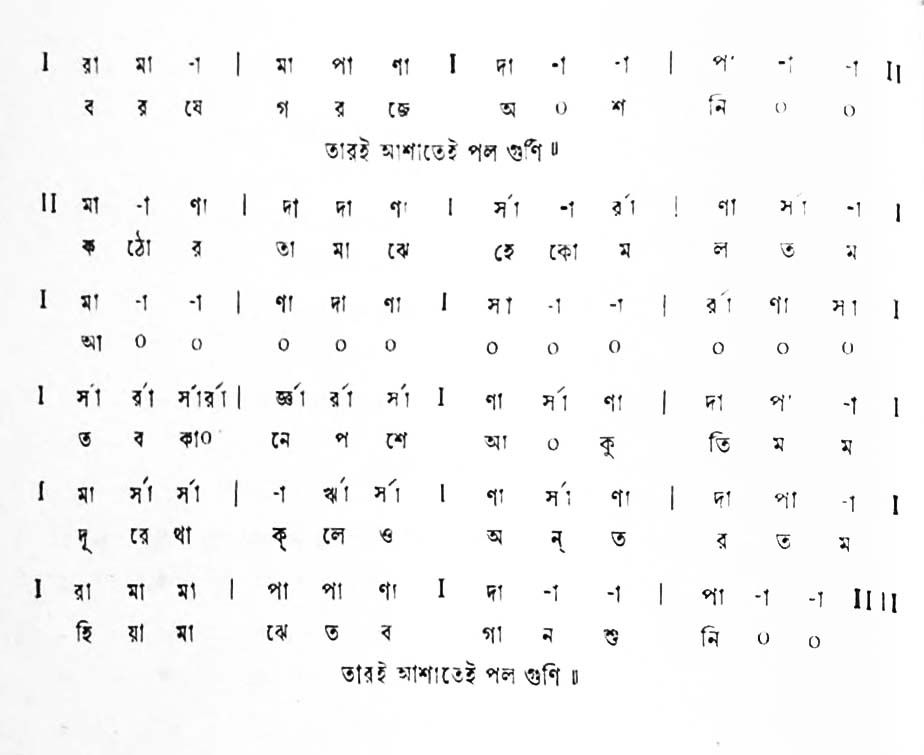 I রা মা -া | মা পা ণা I দা -া -া | পা -া -া II
ব র ষে গ র জে অ ০ শ নি ০ ০
তারই আশাতেই পল গুণি ॥
II মা -া ণা | দা দা ণা I র্সা -া র্রা | ণা র্সা -া I
ক ঠো র তা মা ঝে হে কো ম ল ত ম
I মা -া -া | ণা দা ণা I সা -া -া | র্রা ণা সা I
আ ০ ০ ০ ০ ০ ০ ০ ০ ০ ০ ০
I র্সা র্রা র্সার্রা | র্জ্ঞা র্রা র্সা I ণা র্সা ণা | দা পা -া I
ত ব কা০ নে প শে আ ০ কু তি ম ম
I মা র্সা র্সা | -া র্ঋা র্সা I ণা র্সা ণা | দা পা -া I
দূ রে থা ক্ লে ও অ ন্ ত র ত ম
I রা মা মা | পা পা ণা I দা -া -া | পা -া -া II II
হি য়া মা ঝে ত ব গা ন শু নি ০ ০
তারই আশাতেই পল গুণি ॥